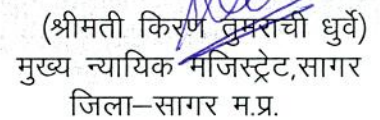 (श्रीमती किरण तुमराची धुर्वे)
मुख्य न्यायिक मजिस्ट्रेट,सागर
जिला–सागर म.प्र.